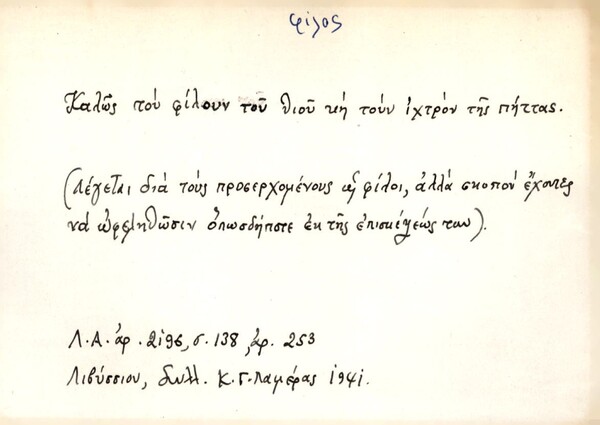 φίλος
Καλῶς τὸν φίλουν τοῦ θιοῦ κὴ τοὺν ἰχτρὸν τῆς πήττας.
(Λέγεται διὰ τοὺς προσερχομένους ὡς φίλοι, ἀλλὰ σκοπὸν ἔχοντες
νὰ ὠφεληθῶσιν ὁπωσδήποτε ἐκ τῆς ἐπισκέψεώς των).
Λ.Α. ἀρ. 2196, σ. 138, ἀρ. 253
Λιβύσσιον, Συλλ. Κ.Γ. Λαμέρας 1941.